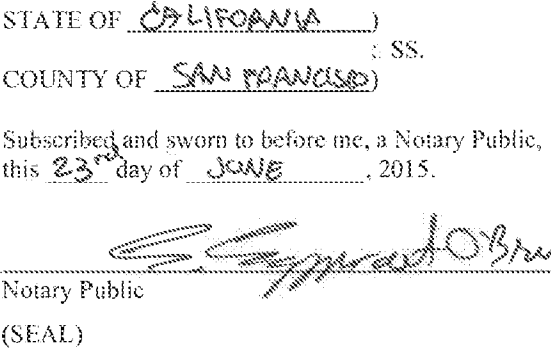 STATE OF CALIFORNIA )
: SS.
COUNTY OF SAN FRANCISCO)
Subscribed and sworn to before me, a Notary Public,
this 23rd day of JUNE, 2015.
Notary Public
(SEAL)